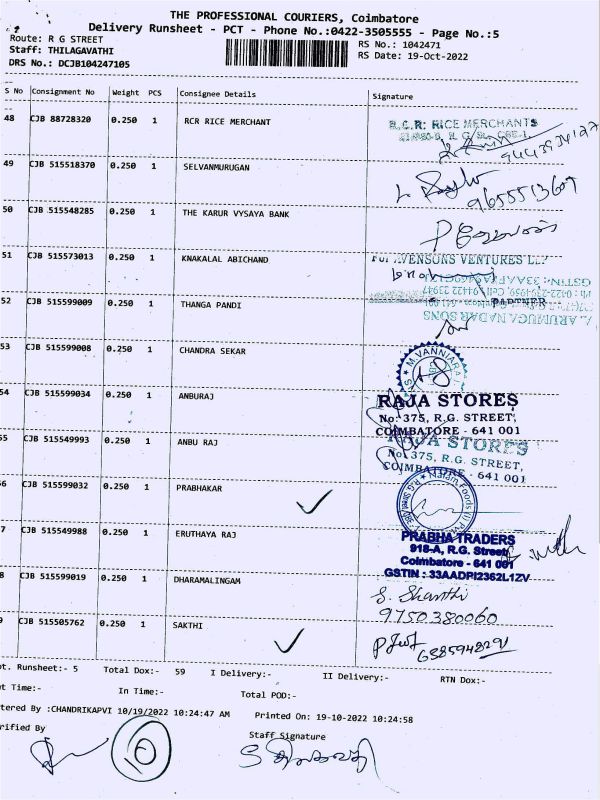 THE PROFESSIONAL COURIERS, Coimbatore
Delivery Runsheet - PCT - Phone No.:0422-3505555 - Page No.:5
Route: R G STREET
Staff: THILAGAVATHI
DRS No.: DCJB104247105
RS No.: 1042471
RS Date: 19-Oct-2022
S No Consignment No Weight PCS Consignee Details Signature
48 CJB 88728320 0.250 1 RCR RICE MERCHANT
R.C.R: RICE MERCHANTS
9443934127
49 CJB 515518370 0.250 1 SELVANMURUGAN
9655513609
50 CJB 515548285 0.250 1 THE KARUR VYSAYA BANK
51 CJB 515573013 0.250 1 KNAKALAL ABICHAND
VENSONS VENTURES
PARTNER
52 CJB 515599009 0.250 1 THANGA PANDI
A. ARUMUGA NADAR SONS
53 CJB 515599008 0.250 1 CHANDRA SEKAR
M.VANNIARAJ
54 CJB 515599034 0.250 1 ANBURAJ
RAJA STORES
No: 375, R.G. STREET,
COIMBATORE - 641 001
55 CJB 515549993 0.250 1 ANBU RAJ
RAJA STORES
No. 375, R.G. STREET,
COIMBATORE - 641 001
56 CJB 515599032 0.250 1 PRABHAKAR
57 CJB 515549988 0.250 1 ERUTHAYA RAJ
PRABHA TRADERS
918-A, R.G. Street
Coimbatore - 641 001
GSTIN : 33AADPI2362L1ZV
58 CJB 515599019 0.250 1 DHARAMALINGAM
S. Shanthi
9750380060
59 CJB 515505762 0.250 1 SAKTHI
ot. Runsheet:- 5 Total Dox:- 59 I Delivery:- II Delivery:- RTN Dox:-
t Time:- In Time:- Total POD:-
tered By :CHANDRIKAPVI 10/19/2022 10:24:47 AM Printed On: 19-10-2022 10:24:58
rified By Staff Signature
10